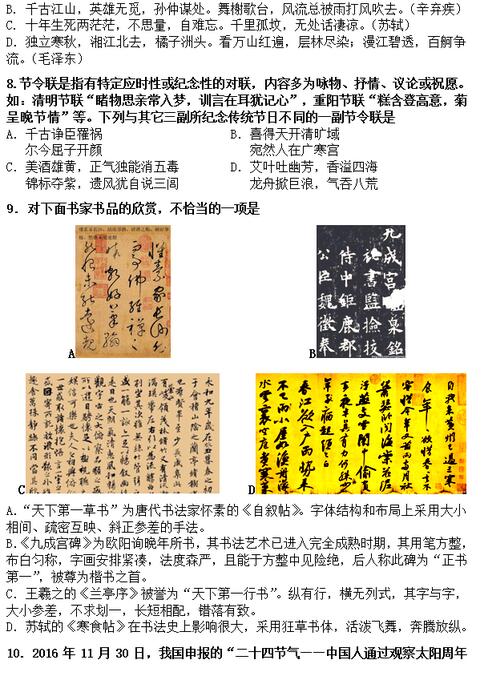 B．千古江山，英雄无觅，孙仲谋处。舞榭歌台，风流总被雨打风吹去。（辛弃疾）
C．十年生死两茫茫，不思量，自难忘。千里孤坟，无处话凄凉。（苏轼）
D．独立寒秋，湘江北去，橘子洲头。看万山红遍，层林尽染；漫江碧透，百舸争
流。（毛泽东）
8.节令联是指有特定应时性或纪念性的对联，内容多为咏物、抒情、议论或祝愿。
如：清明节联“睹物思亲常入梦，训言在耳犹记心”，重阳节联“糕含登高意，菊
呈晚节情”等。下列与其它三副所纪念传统节日不同的一副节令联是
A．千古诤臣罹祸
尔今屈子开颜
B．喜得天开清旷域
宛然人在广寒宫
C．美酒雄黄，正气独能消五毒
锦标夺紫，遗风犹自说三闾
D．艾叶吐幽芳，香溢四海
龙舟掀巨浪，气吞八荒
9．对下面书家书品的欣赏，不恰当的一项是
A
B
九成宫醴泉铭
秘书监检校
侍中钜鹿郡
公臣魏徵奉
C
D
A.“天下第一草书”为唐代书法家怀素的《自叙帖》。字体结构和布局上采用大小
相间、疏密互映、斜正参差的手法。
B.《九成宫碑》为欧阳询晚年所书，其书法艺术已进入完全成熟时期，其用笔方整，
布白匀称，字画安排紧凑，法度森严，且能于方整中见险绝，后人称此碑为“正书
第一”，被尊为楷书之首。
C．王羲之的《兰亭序》被誉为“天下第一行书”。纵有行，横无列式，其字与字，
大小参差，不求划一，长短相配，错落有致。
D．苏轼的《寒食帖》在书法史上影响很大，采用狂草书体，活泼飞舞，奔腾放纵。
10．2016 年 11 月 30 日，我国申报的“二十四节气——中国人通过观察太阳周年